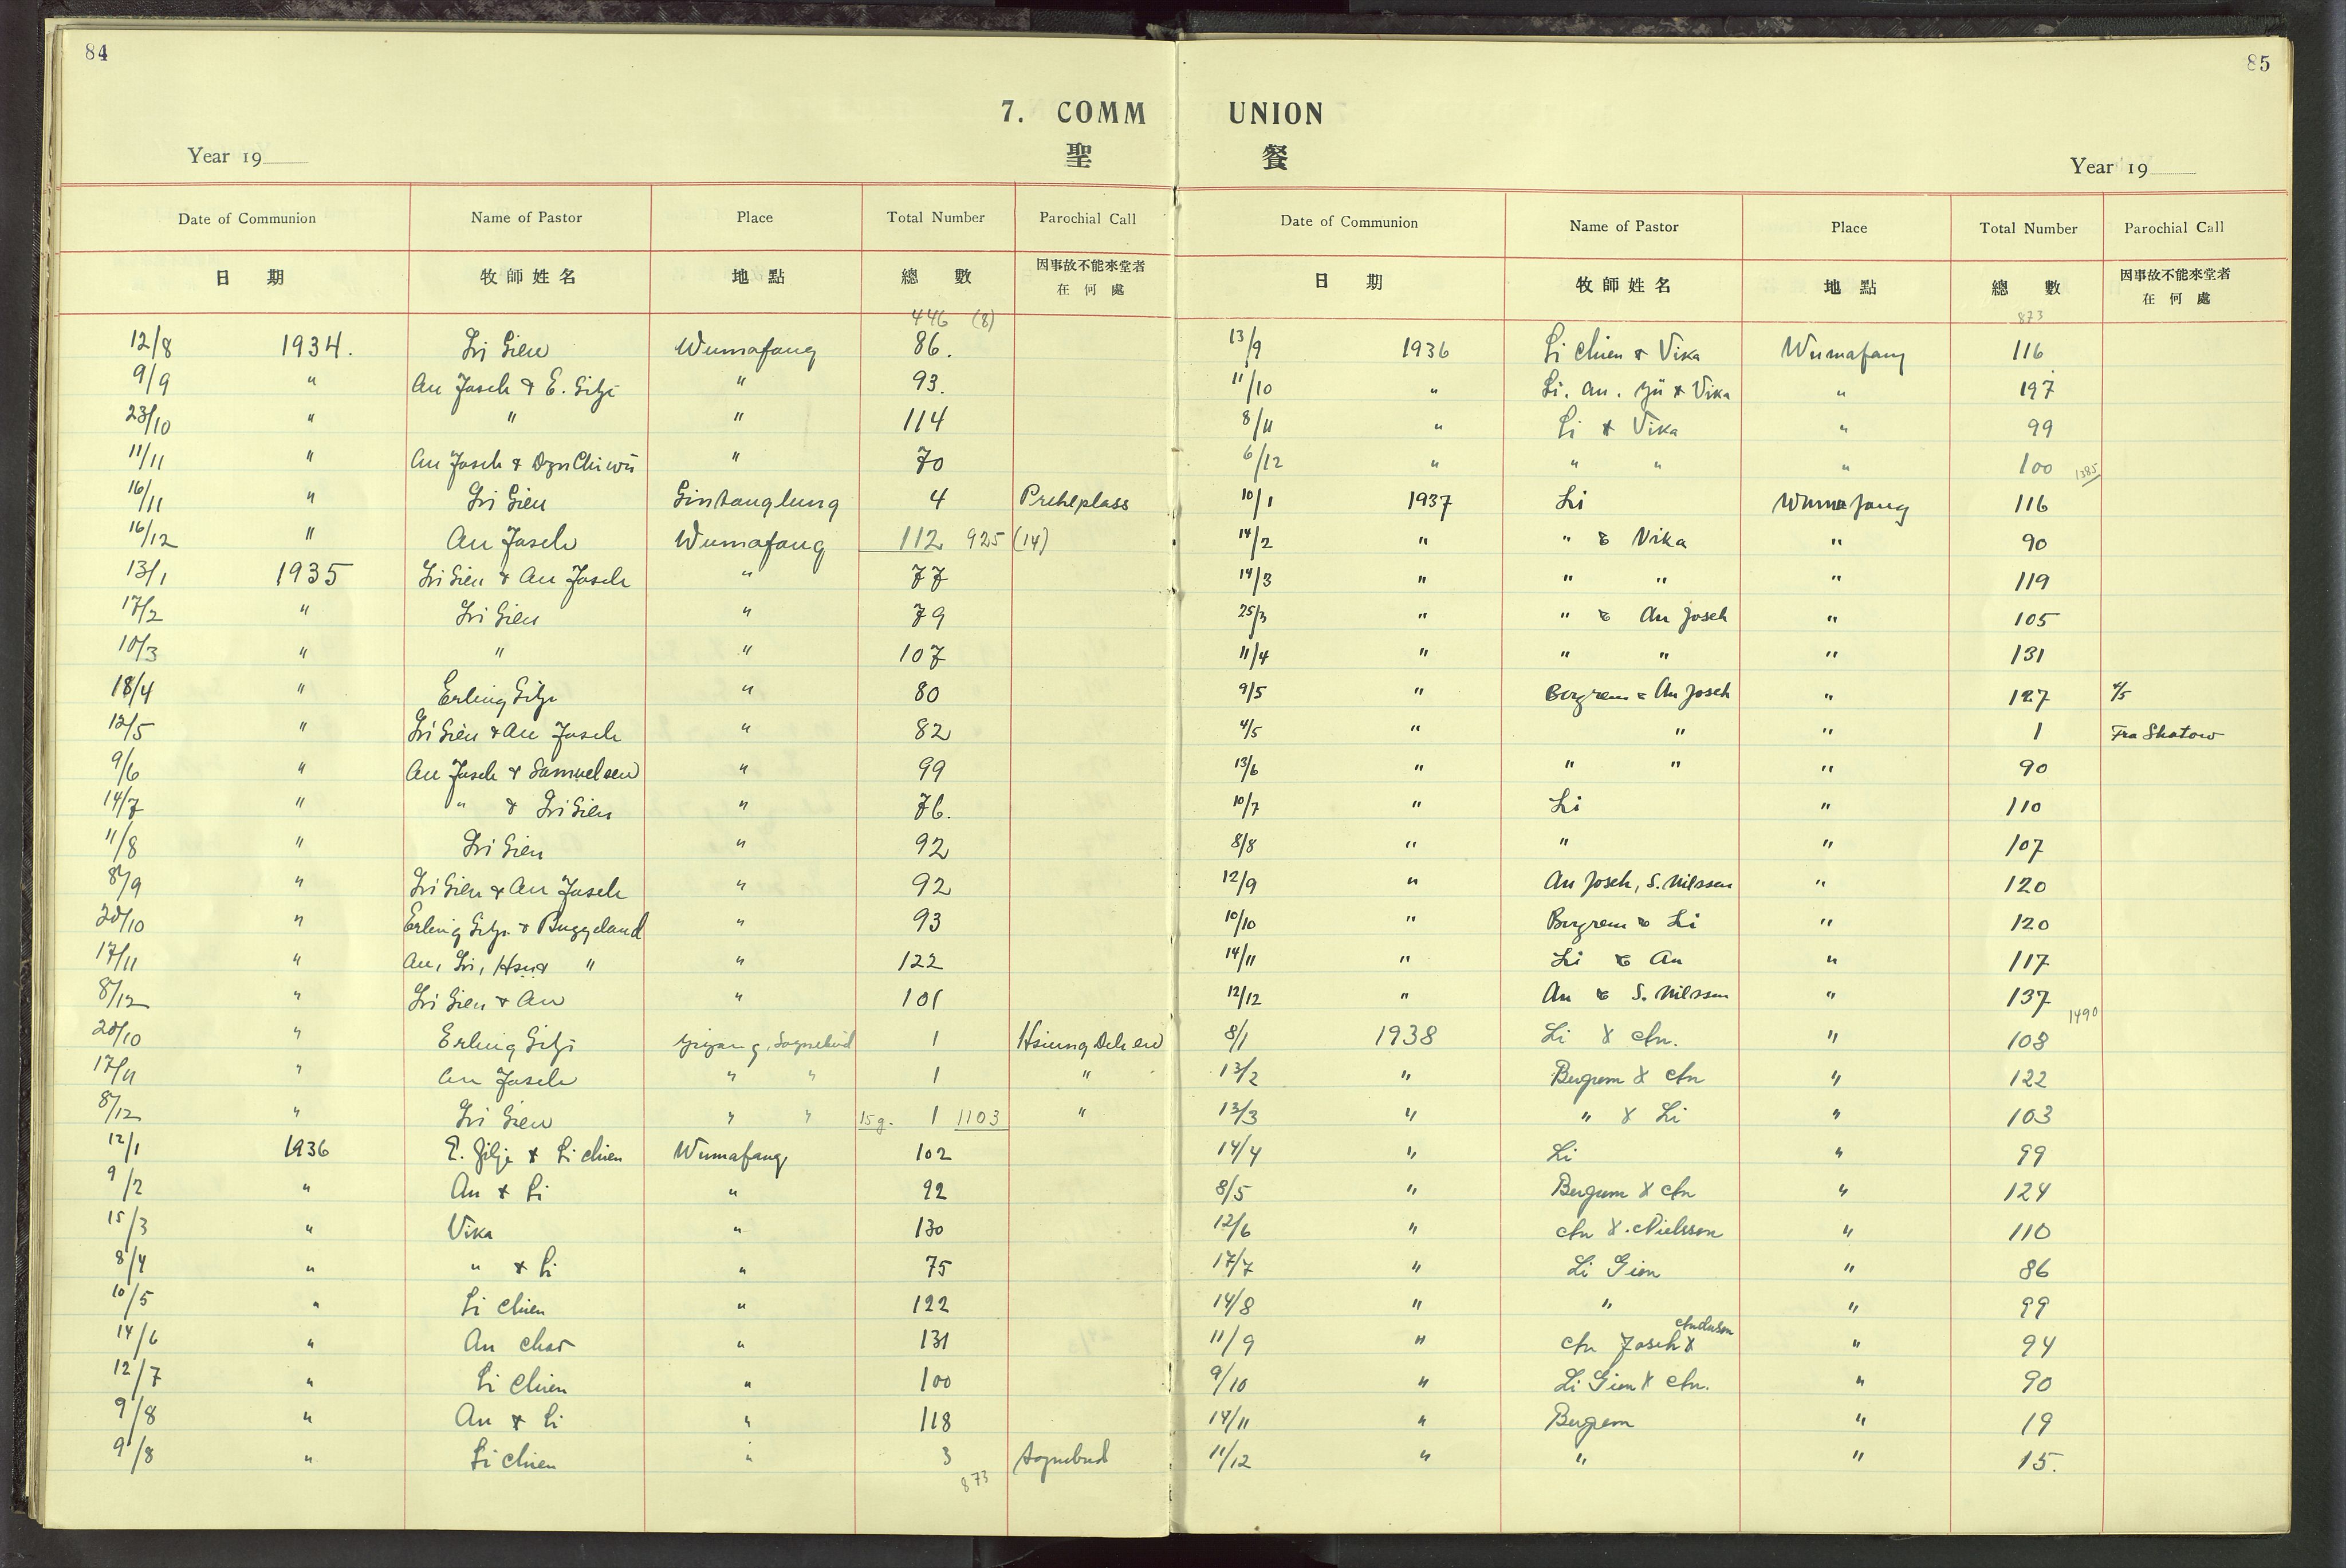 84
7. COMM
Year 19
聖
Date of Communion Name of Pastor Place Total Number Parochial Call
日 期 牧師姓名 地點 總數 因事故不能來堂者
在何處
446 (8)
12/8 1934. Li Gien Wumafang 86.
9/9 " An Josch & E. Gilje " 93.
23/10 " " " 114
11/11 " An Josch & " 70
16/11 " Li Gien Gintanglung 4 Prekeplass
16/12 " An Josch Wumafang 112 925 (14)
13/1 1935 Li Gien & An Josch " 77
17/2 " Li Gien " 79
10/3 " " " 107
18/4 " Erling Gilje " 80
12/5 " Li Gien & An Josch " 82
9/6 " An Josch & Samuelsen " 99
14/7 " " & Li Gien " 76.
11/8 " Li Gien " 92
8/9 " Li Gien & An Josch " 92
20/10 " Erling Gilje & Buggeland " 93
17/11 " An, Li, Hsu & " " 122
8/12 " Li Gien & An " 101
20/10 " Erling Gilje Yiyang, Sognebud 1 Hsiung
17/11 " An Josch " " 1 "
8/12 " Li Gien " " 15g. 1 1103 "
12/1 1936 E. Gilje & Li chien Wumafang 102
9/2 " An & Li " 92
15/3 " Vika " 130
8/4 " " & Li " 75
10/5 " Li chien " 122
14/6 " An " 131
12/7 " Li chien " 100
9/8 " An & Li " 118
9/8 " Li chien " 3
873
85
UNION
餐
Year 19
Date of Communion Name of Pastor Place Total Number Parochial Call
日 期 牧師姓名 地點 總數 因事故不能來堂者
在何處
873
13/9 1936 Li chien & Vika Wumafang 116
11/10 " Li. An. Yü & Vika " 197
8/11 " Li & Vika " 99
6/12 " " " " 100 1385
10/1 1937 Li Wumafang 116
14/2 " " & Vika " 90
14/3 " " " " 119
25/3 " " & An Josch " 105
11/4 " " " " 131
9/5 " Bergrem & An Josch " 127 4/5
4/5 " " " 1 Fra Shatow
13/6 " " " " 90
10/7 " Li " 110
8/8 " " " 107
12/9 " An Josch, S. Nilssen " 120
10/10 " Bergrem & Li " 120
14/11 " Li & An " 117
12/12 " An & S. Nilssen " 137
1490
8/1 1938 Li & An. " 108
13/2 " Bergrem & An " 122
13/3 " " & Li " 103
14/4 " Li " 99
8/5 " Bergrem & An " 124
12/6 " An & Nielssen " 110
17/7 " Li Gien " 86
14/8 " " " 99
11/9 " An Josch & Anderson " 94
9/10 " Li Gien & An. " 90
14/11 " Bergrem " 19
11/12 " " " 15.